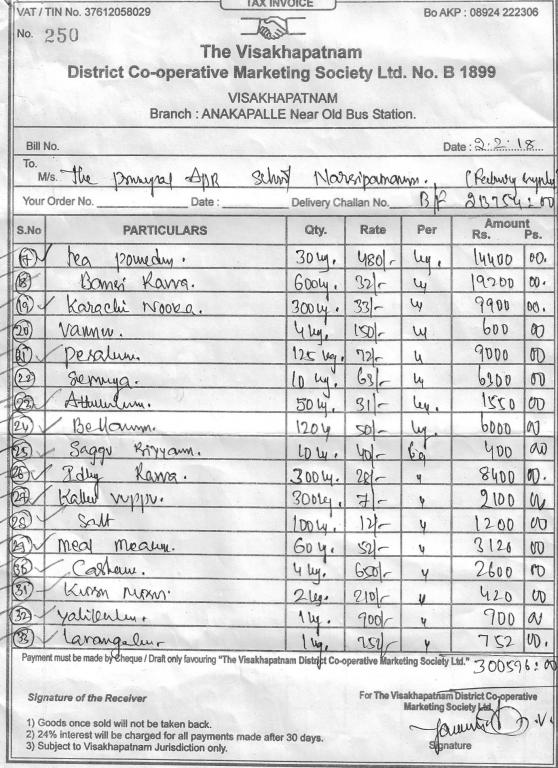 TAX INVOICE
VAT / TIN No. 37612058029 Bo AKP : 08924 222306
No. 250
The Visakhapatnam
District Co-operative Marketing Society Ltd. No. B 1899
VISAKHAPATNAM
Branch : ANAKAPALLE Near Old Bus Station.
Bill No. Date : 2.2.18
To.
M/s. The APR School Narsipatnam.
Your Order No. Date : Delivery Challan No. B/F 213754=00
S.No PARTICULARS Qty. Rate Per Amount Rs. Ps.
17 Tea powder. 30 kg. 480/- kg. 14400 00.
18 Bansi Ravva. 600 kg. 32/- kg 19200 00.
19 Karachi Nooka. 300 kg. 33/- 9900 00.
20 Vammu. 4 kg. 150/- 600 00
21 Pesalu. 125 kg. 72/- 9000 00
22 Semiya. 63/- 6300 00
23 50 kg. 31/- kg. 1550 00
24 Bellam. 120 kg 50/- kg. 6000 00
25 Saggu Biyyam. 10 kg. 40/- 400 00
26 Idly Ravva. 300 kg. 28/- " 8400 00
27 Kallu uppu. 300 kg. 7/- " 2100 00
28 Salt 100 kg. 12/- " 1200 00
29 Meal Meaker. 60 kg. 52/- " 3120 00
30 Cashew. 4 kg. 650/- " 2600 00
31 2 kg. 210/- " 420 00
32 1 kg. 700/- " 700 00
33 Lavangalu 1 kg. 752/- " 752 00.
Payment must be made by Cheque / Draft only favouring "The Visakhapatnam District Co-operative Marketing Society Ltd." 300596=00
Signature of the Receiver
For The Visakhapatnam District Co-operative
Marketing Society Ltd.
1) Goods once sold will not be taken back.
2) 24% interest will be charged for all payments made after 30 days.
3) Subject to Visakhapatnam Jurisdiction only.
Signature